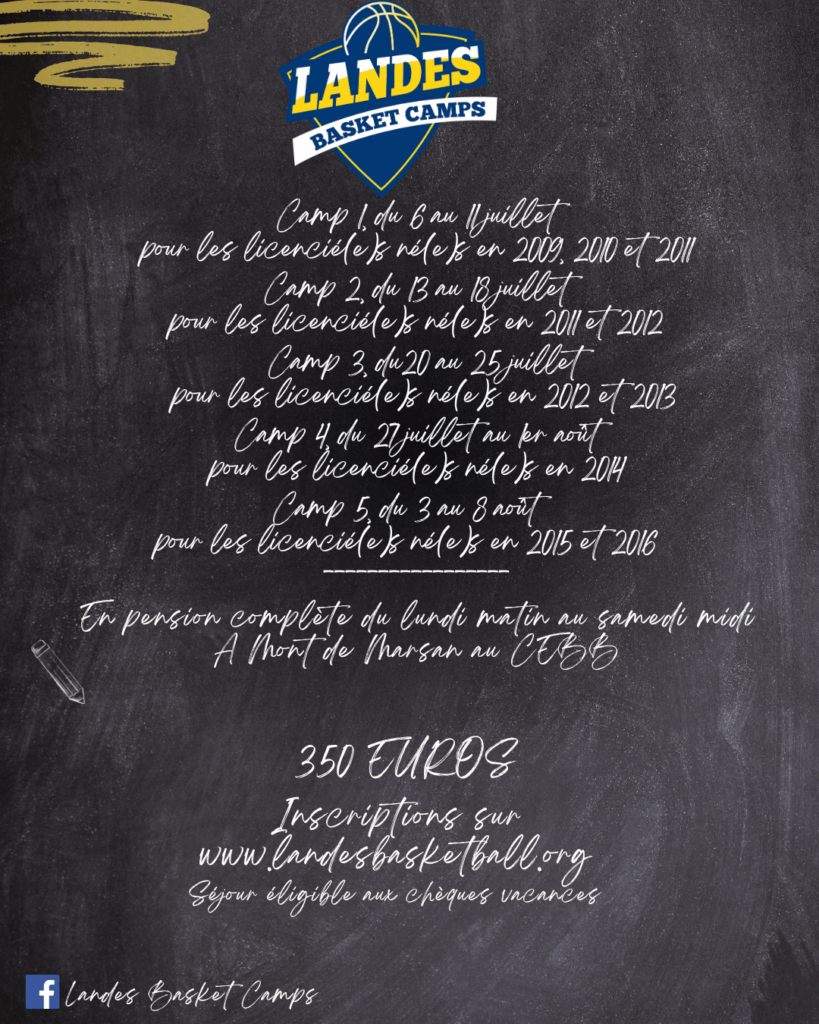 LANDES
BASKET CAMPS
Camp 1, du 6 au 11 juillet
pour les licencié(e)s né(e)s en 2009, 2010 et 2011
Camp 2, du 13 au 18 juillet
pour les licencié(e)s né(e)s en 2011 et 2012
Camp 3, du 20 au 25 juillet
pour les licencié(e)s né(e)s en 2012 et 2013
Camp 4, du 27 juillet au 1er août
pour les licencié(e)s né(e)s en 2014
Camp 5, du 3 au 8 août
pour les licencié(e)s né(e)s en 2015 et 2016
-----------------
En pension complète du lundi matin au samedi midi
A Mont de Marsan au CEBB
350 EUROS
Inscriptions sur
www.landesbasketball.org
Séjour éligible aux chèques vacances
f Landes Basket Camps